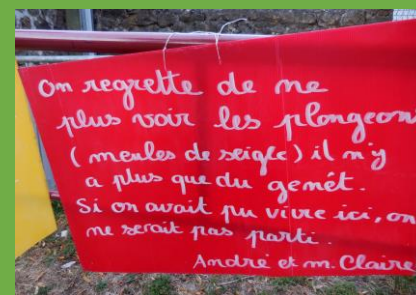 On regrette de ne
plus voir les plongeons
(meules de seigle) il n'y
a plus que du genêt.
Si on avait pu vivre ici, on
ne serait pas parti.
André et m. Claire